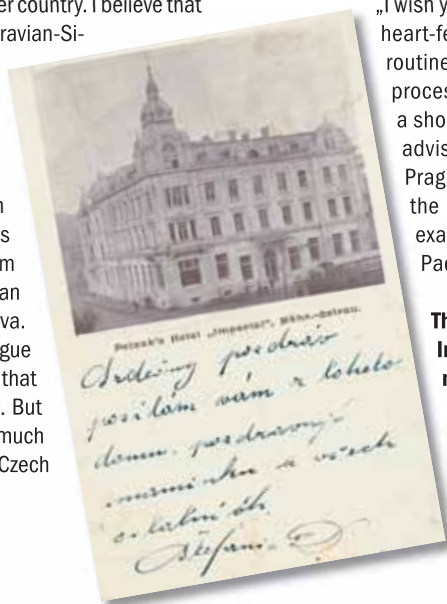 er country. I believe that
ravian-Si-
n
s
m
an
va.
gue
that
. But
much
Czech
Hotel „Imperial“, Mähr.-Ostrau.
Srdečný pozdrav
posílám vám z tohoto
domu, pozdravuji
maminku a všech
ostatních
Štefanie
„I wish y
heart-fe
routine
proces
a sho
advis
Prag
the
exa
Pac
Th
In
r